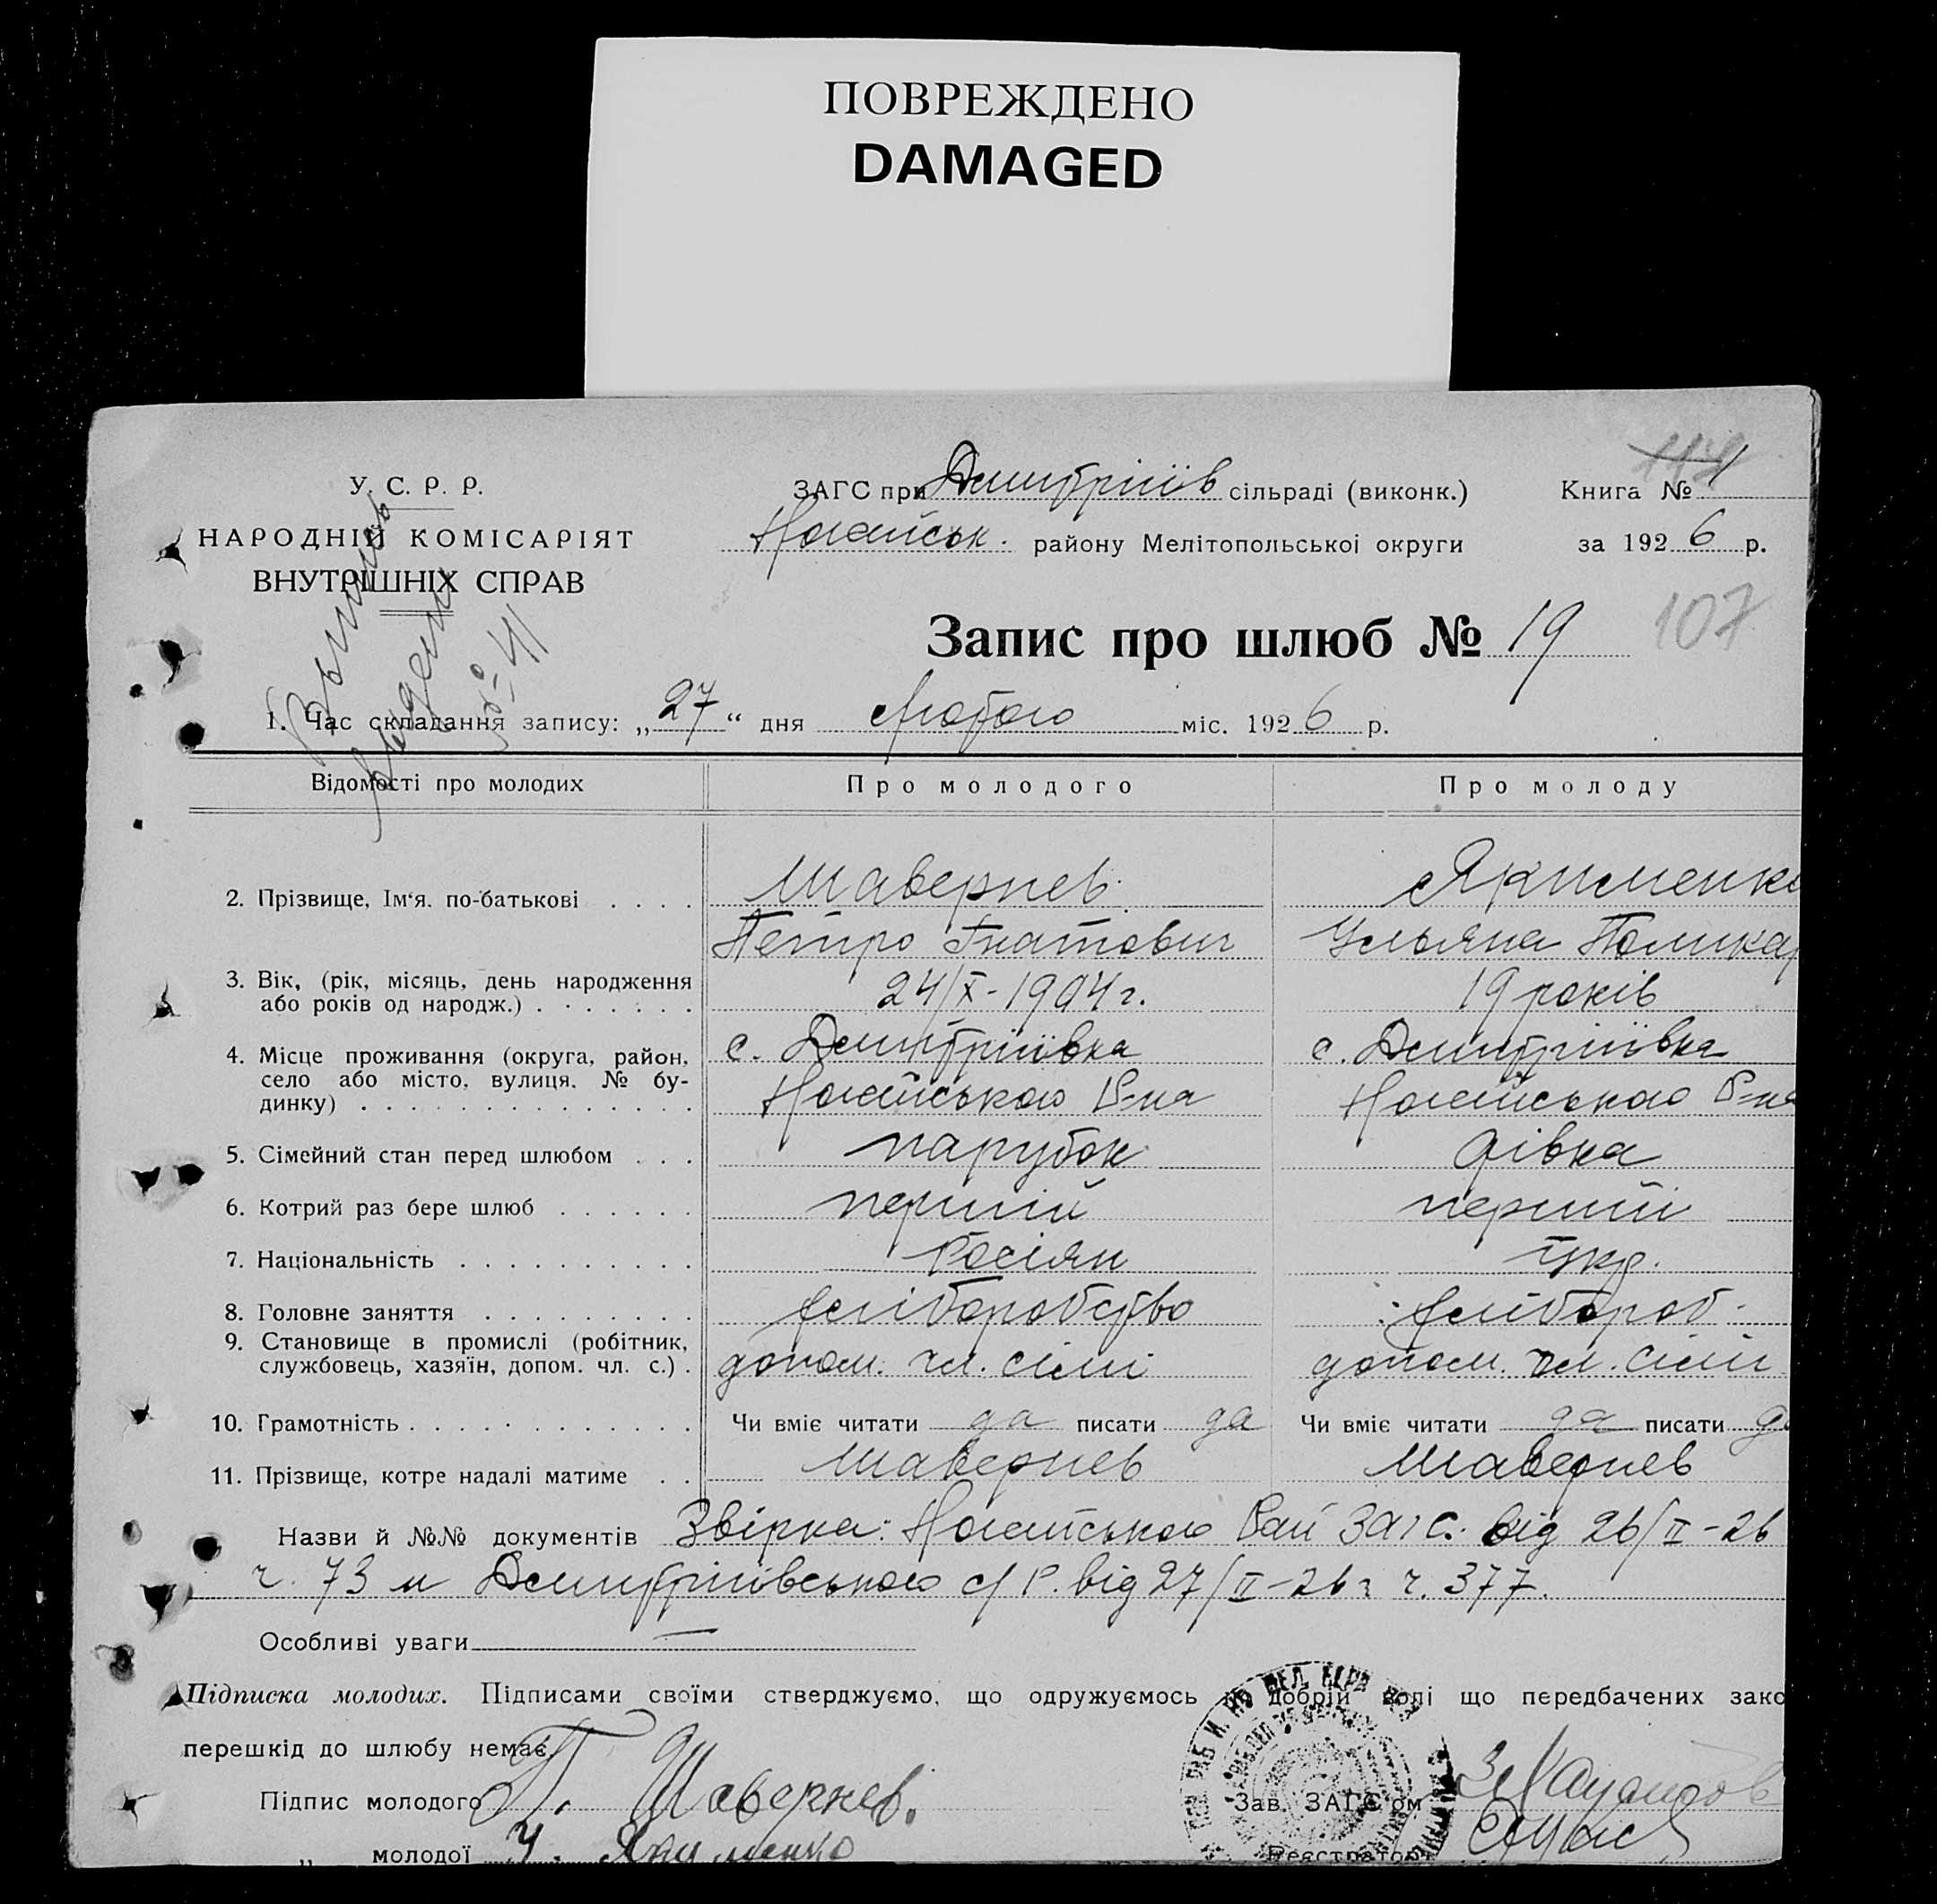 ПОВРЕЖДЕНО
DAMAGED
У. С. Р. Р.
НАРОДНІЙ КОМІСАРІЯТ
ВНУТРІШНІХ СПРАВ
ЗАГС при Дмитріїв сільраді (виконк.)
Ногайськ. району Мелітопольської округи
Книга № 1
за 1926 р.
107
№ 41
Запис про шлюб № 19
1. Час складання запису: „27“ дня Лютого міс. 1926 р.
Відомості про молодих Про молодого Про молоду
2. Прізвище, Ім‘я. по-батькові . . . . Шавернев. Якименко
Петро Гнатович Ульяна Поликар
3. Вік, (рік, місяць, день народження
або років од народж.) . . . . . . . 24/X-1904 г. 19 років
4. Місце проживання (округа, район, с. Дмитріївка с. Дмитріївка
село або місто, вулиця. № бу-
динку) . . . . . . . . . . . . . . Ногайського Р-на Ногайського Р-на
5. Сімейний стан перед шлюбом . . . парубок дівка
6. Котрий раз бере шлюб . . . . . . перший перший
7. Національність . . . . . . . . . . Росіян Укр.
8. Головне заняття . . . . . . . . . хліборобство хлібороб
9. Становище в промислі (робітник,
службовець, хазяїн, допом. чл. с.) . допом. чл. сімї допом. чл. сімї
10. Грамотність . . . . . . . . . . . . Чи вміє читати да писати да Чи вміє читати да писати да
11. Прізвище, котре надалі матиме . . Шавернев Шавернев
Назви й №№ документів Звірка: Ногайського Рай ЗАГС. від 26/II-26
ч. 73 и Дмитріївського с/Р. від 27/II-26 г ч. 377.
Особливі уваги —
Підписка молодих. Підписами своїми стверджуємо, що одружуємось добрій волі що передбачених зако
перешкід до шлюбу немає
Підпис молодого П. Шавернев.
Зав. ЗАГС‘ом
„ молодої У. Якименко
Реєстратор